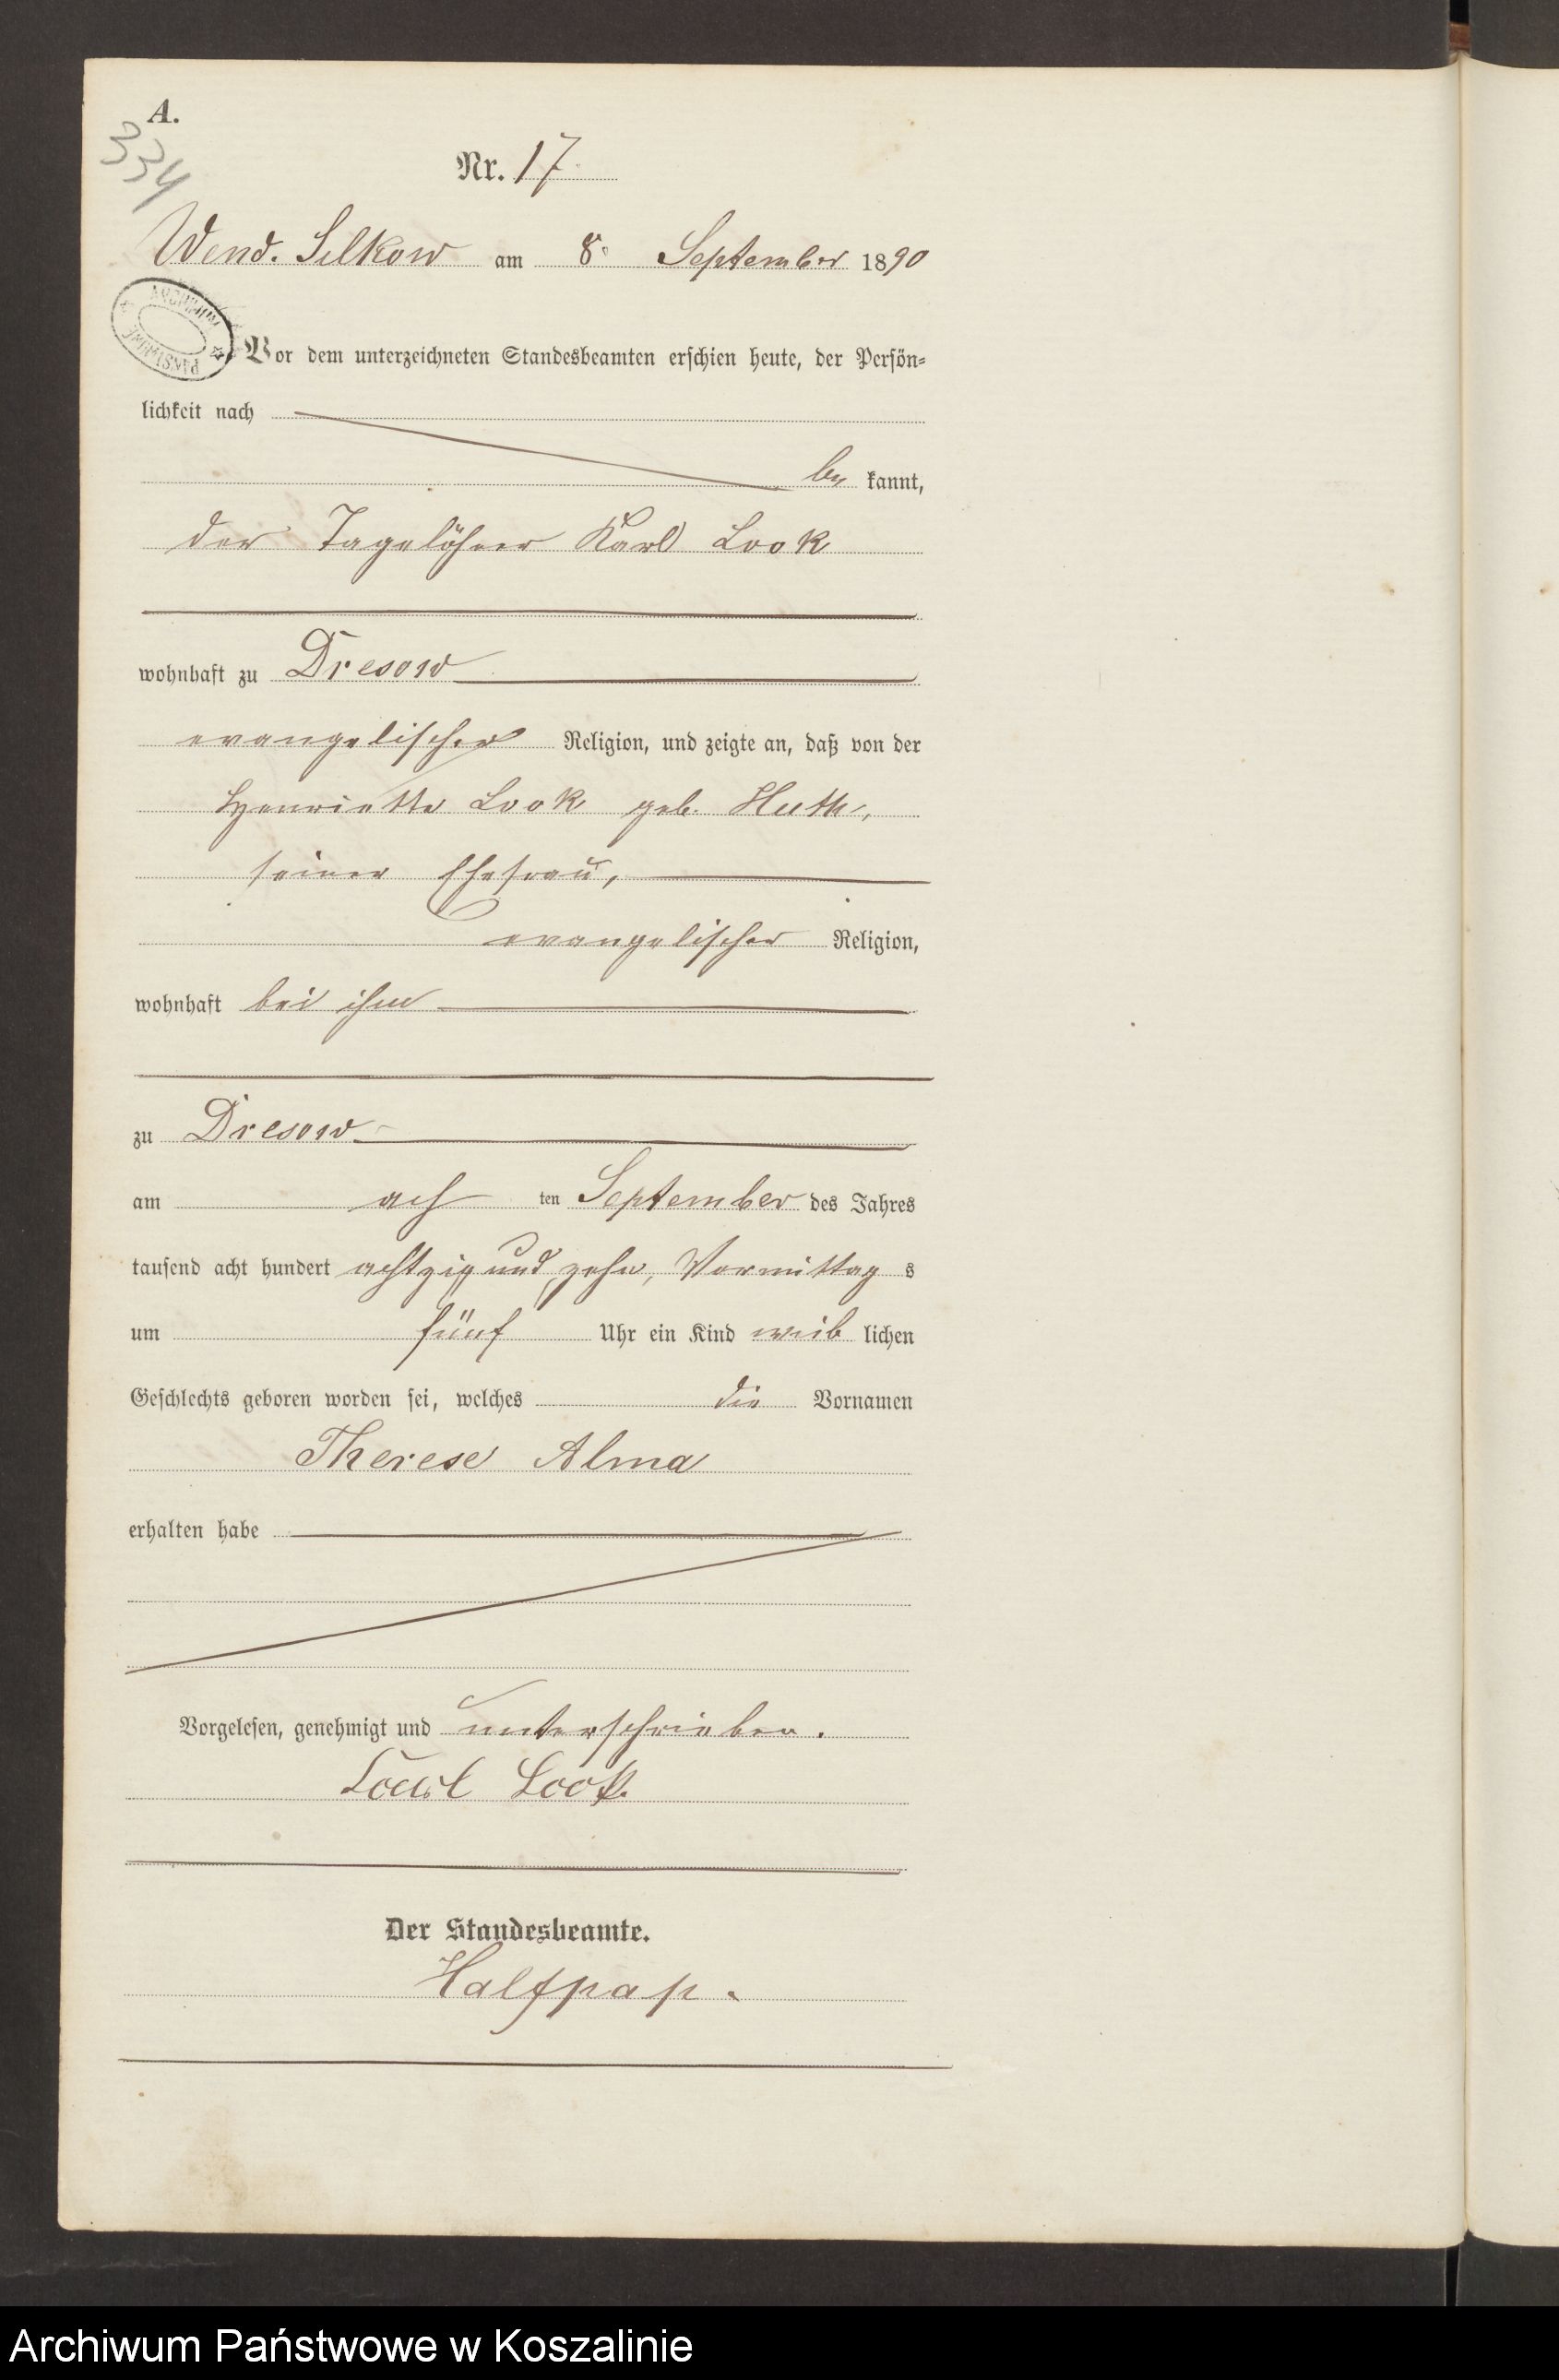 A.
334
Nr. 17
Wend. Silkow am 8. September 1890
ARCHIWUM PAŃSTWOWE
Vor dem unterzeichneten Standesbeamten erschien heute, der Persön-
lichkeit nach
be kannt,
der Tagelöhner Karl Look
wohnhaft zu Dresow
evangelischer Religion, und zeigte an, daß von der
Henriette Look geb. Huth,
seiner Ehefrau,
evangelischer Religion,
wohnhaft bei ihm
zu Dresow
am ach ten September des Jahres
tausend acht hundert achtzig und zehn, Vormittag s
um fünf Uhr ein Kind weib lichen
Geschlechts geboren worden sei, welches die Vornamen
Therese Alma
erhalten habe
Vorgelesen, genehmigt und unterschrieben.
Carl Look.
Der Standesbeamte.
Halfpap.
Archiwum Państwowe w Koszalinie